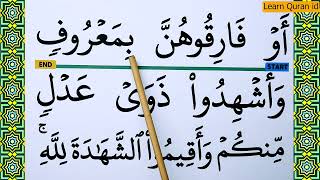 Learn Quran id
أَوۡ فَارِقُوهُنَّ بِمَعۡرُوفٖ
END START
وَأَشۡهِدُواْ ذَوَيۡ عَدۡلٖ
مِّنكُمۡ وَأَقِيمُواْ ٱلشَّهَٰدَةَ لِلَّهِۚ